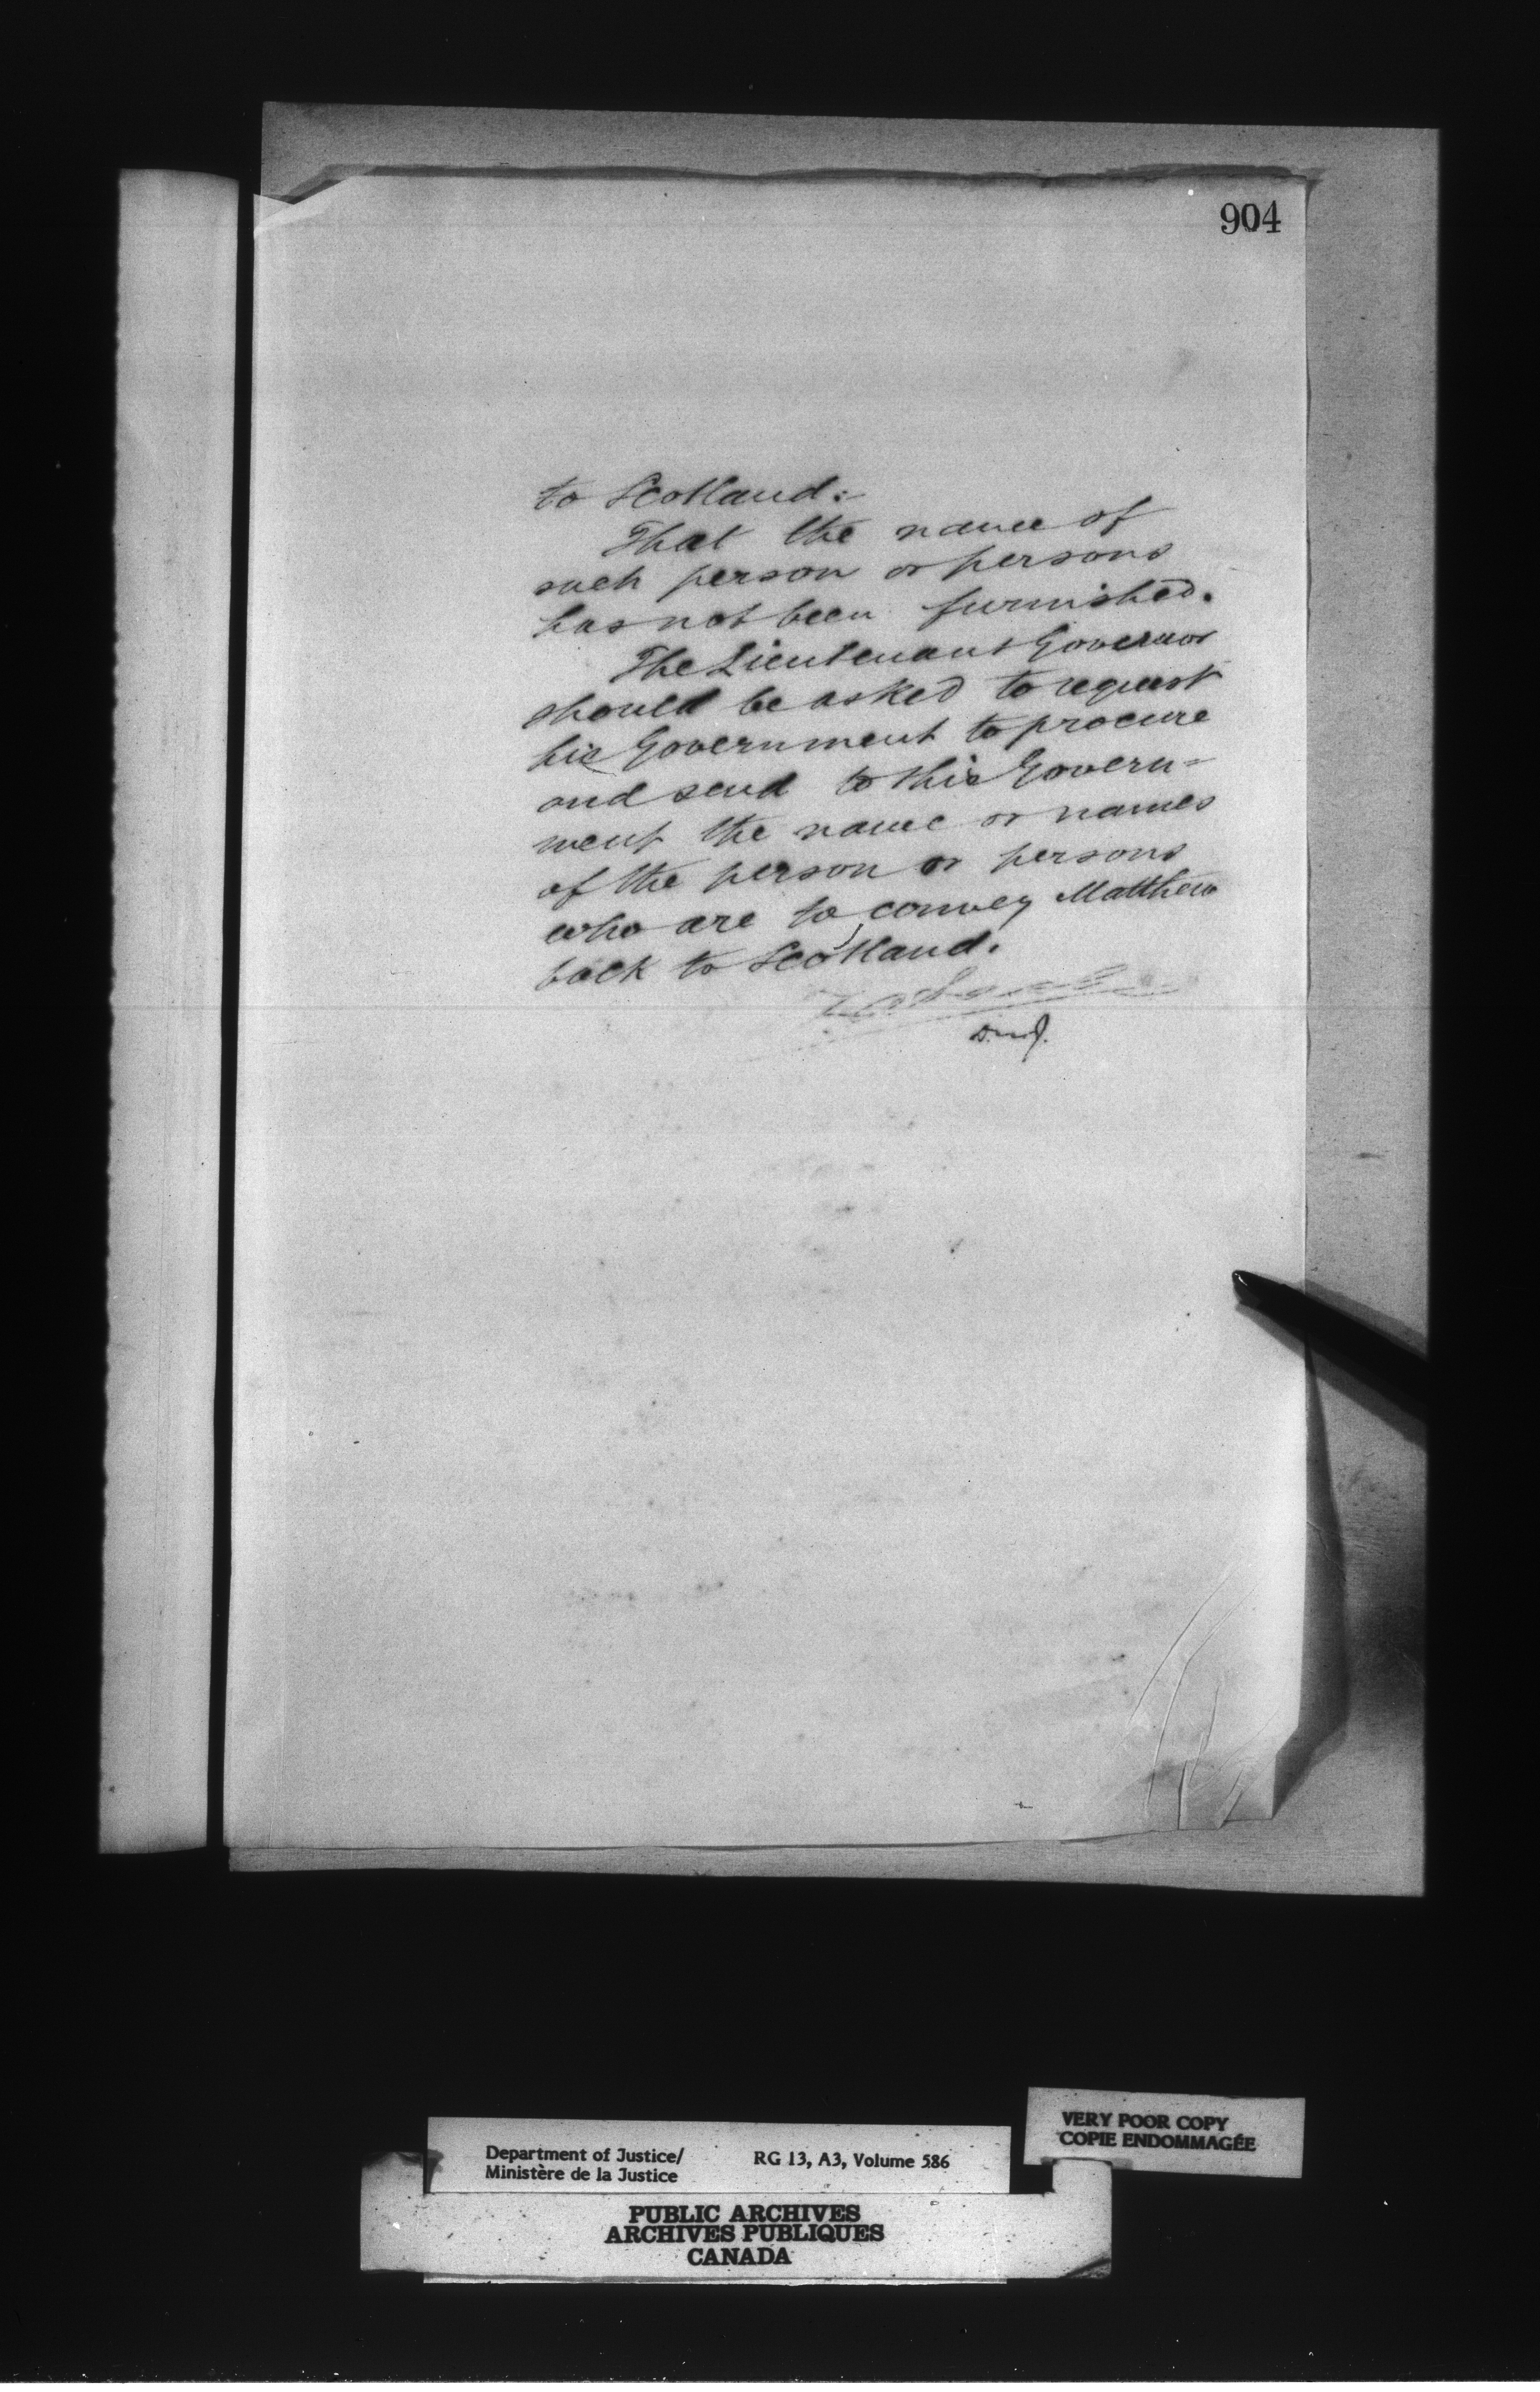 904
to Scotland:-
That the name of
such person or persons
has not been furnished.
The Lieutenant Governor
should be asked to request
his Government to procure
and send to this Govern=
ment the name or names
of the person or persons
who are to convey Matthew
back to Scotland.
D.m.J.
VERY POOR COPY
COPIE ENDOMMAGÉE
Department of Justice/ RG 13, A3, Volume 586
Ministère de la Justice
PUBLIC ARCHIVES
ARCHIVES PUBLIQUES
CANADA